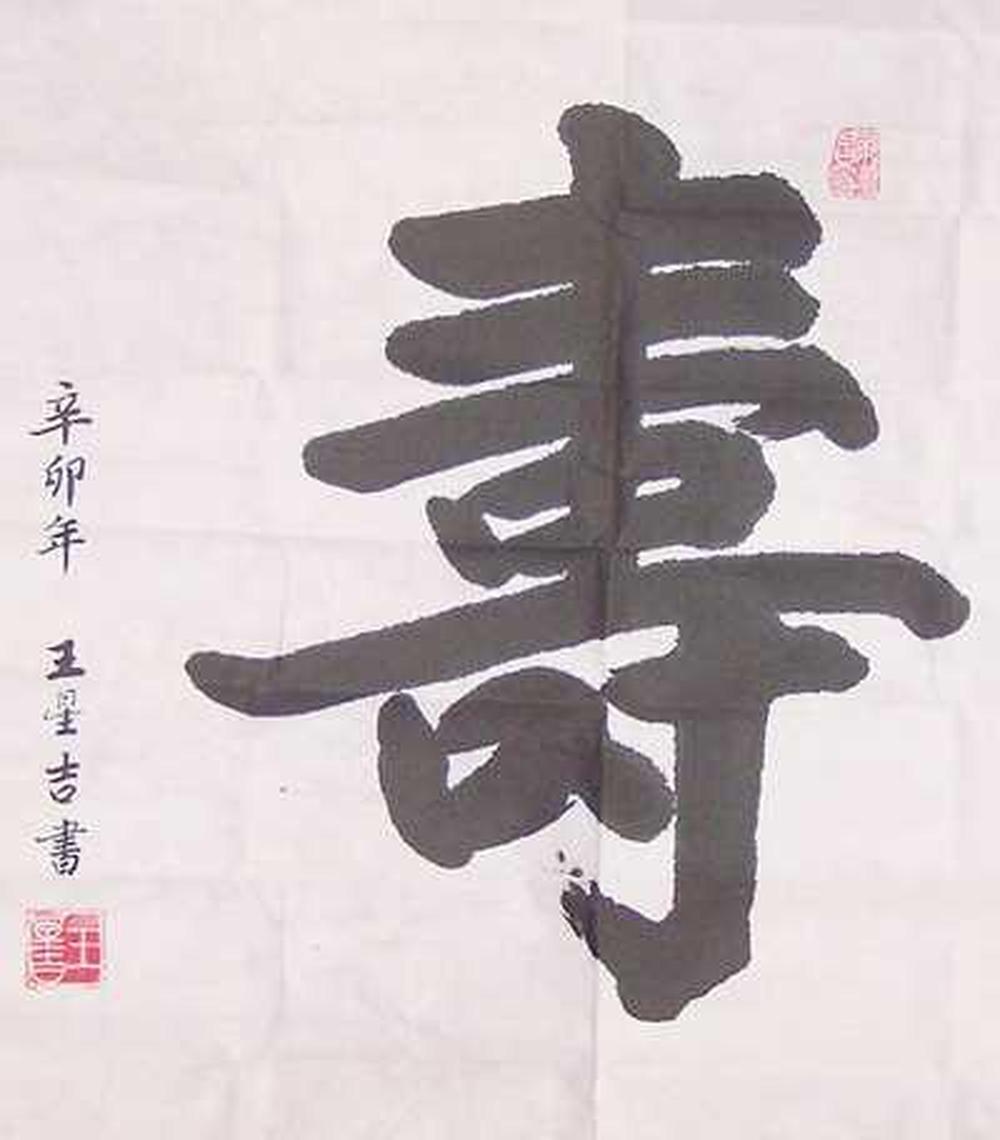 壽
辛卯年 王星吉書